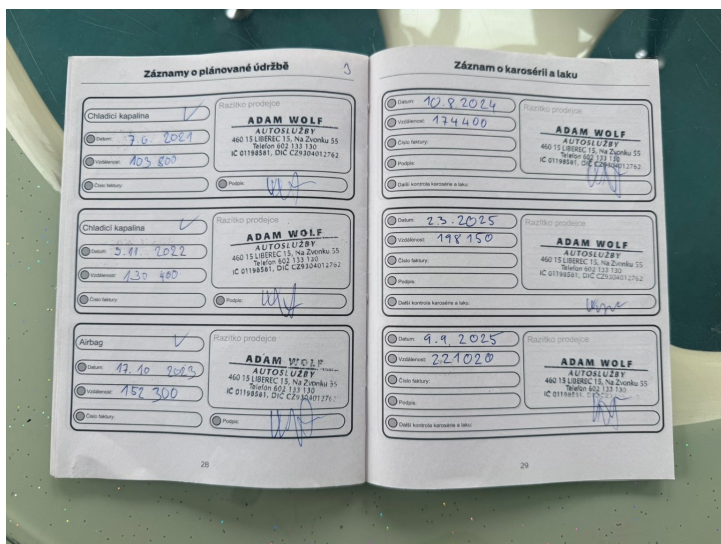 Záznamy o plánované údržbě
Chladicí kapalina
Razítko prodejce
Datum: 7.6. 2021
Vzdálenost: 103 800
Číslo faktury:
ADAM WOLF
AUTOSLUŽBY
460 15 LIBEREC 15, Na Zvonku 55
Telefon 602 133 130
IČ 01198581, DIČ CZ9304012762
Podpis:
Chladicí kapalina
Razítko prodejce
Datum: 9.11. 2022
Vzdálenost: 130 400
Číslo faktury:
ADAM WOLF
AUTOSLUŽBY
460 15 LIBEREC 15, Na Zvonku 55
Telefon 602 133 130
IČ 01198581, DIČ CZ9304012762
Podpis:
Airbag
Razítko prodejce
Datum: 17.10 2023
Vzdálenost: 152 300
Číslo faktury:
ADAM WOLF
AUTOSLUŽBY
460 15 LIBEREC 15, Na Zvonku 55
Telefon 602 133 130
IČ 01198581, DIČ CZ9304012762
Podpis:
28
Záznam o karosérii a laku
Datum: 10.8.2024
Vzdálenost: 174400
Číslo faktury:
Podpis:
Další kontrola karosérie a laku:
Razítko prodejce
ADAM WOLF
AUTOSLUŽBY
460 15 LIBEREC 15, Na Zvonku 55
Telefon 602 133 130
IČ 01198581, DIČ CZ9304012762
Datum: 2.3.2025
Vzdálenost: 198 150
Číslo faktury:
Podpis:
Další kontrola karosérie a laku:
Razítko prodejce
ADAM WOLF
AUTOSLUŽBY
460 15 LIBEREC 15, Na Zvonku 55
Telefon 602 133 130
IČ 01198581, DIČ CZ9304012762
Datum: 9.9. 2025
Vzdálenost: 221020
Číslo faktury:
Podpis:
Další kontrola karosérie a laku:
Razítko prodejce
ADAM WOLF
AUTOSLUŽBY
460 15 LIBEREC 15, Na Zvonku 55
Telefon 602 133 130
IČ 01198581,
29